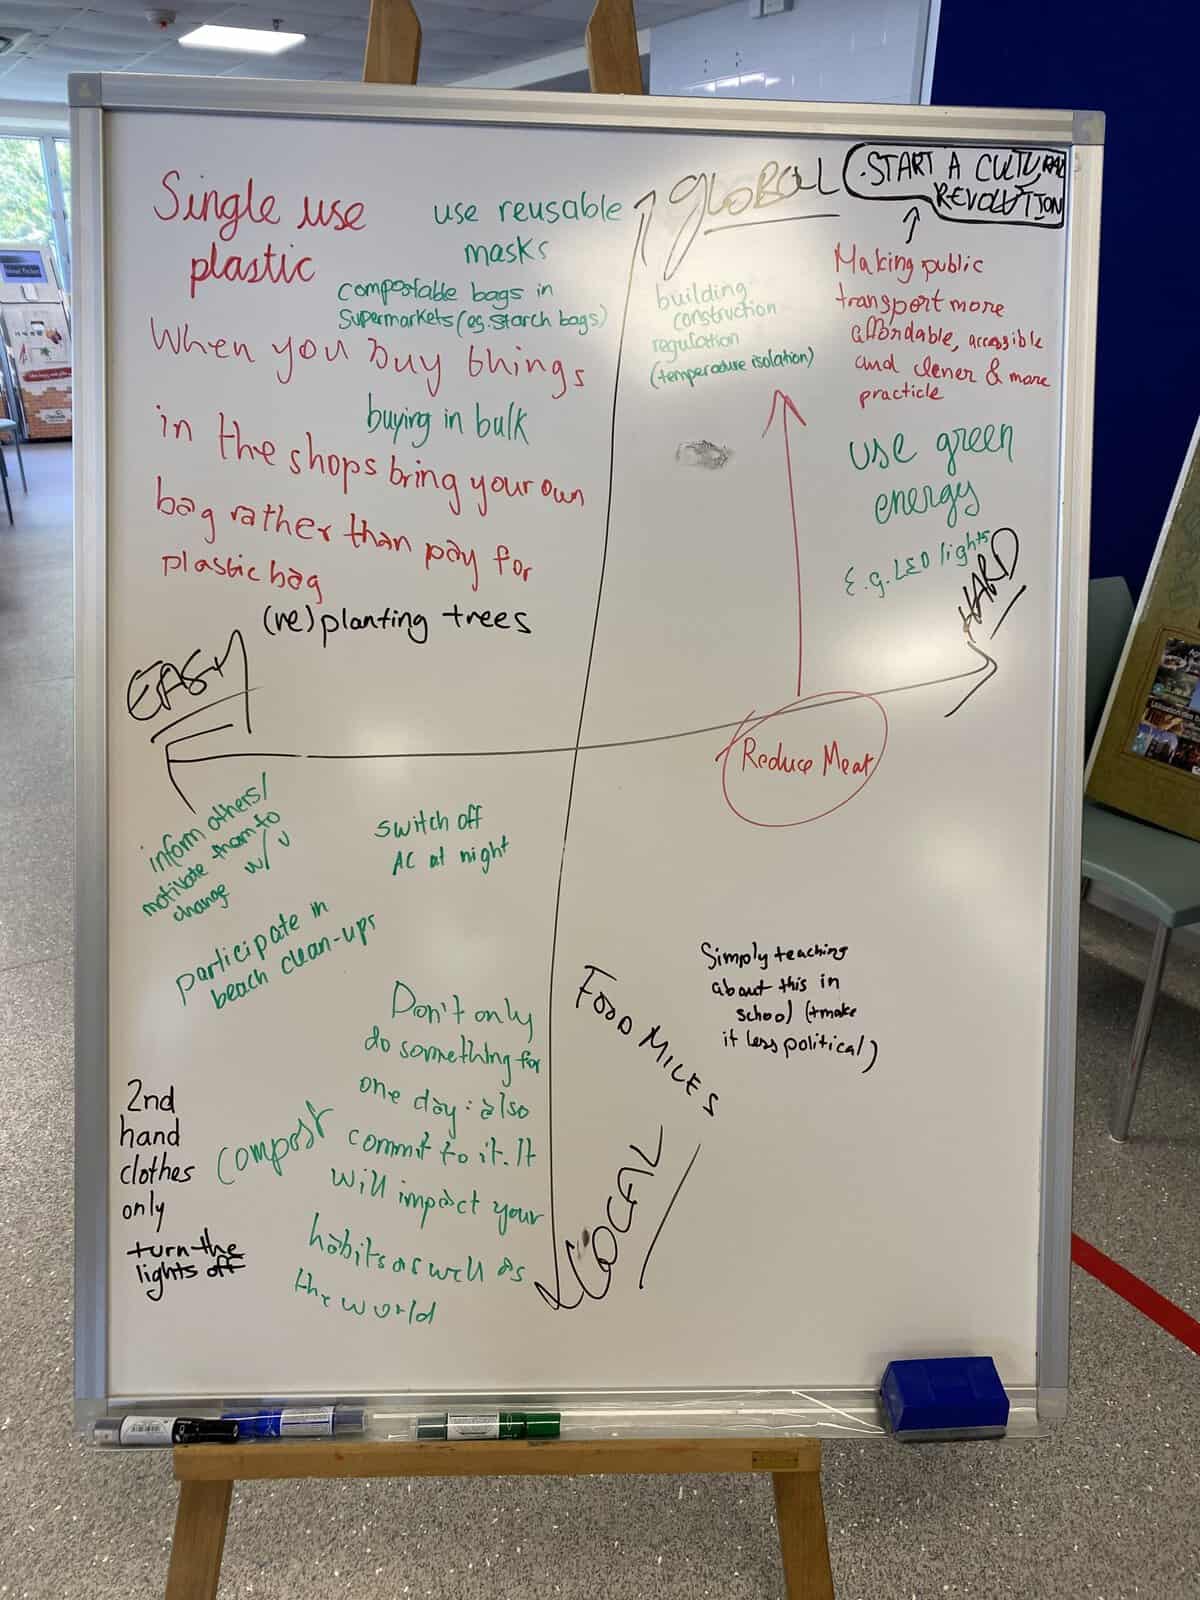 Single use
plastic
use reusable
masks
compostable bags in
supermarkets (eg. starch bags)
When you buy things
buying in bulk
in the shops bring your own
bag rather than pay for
plastic bag
(re)planting trees
GLOBAL
.START A CULTURAL
REVOLUTION
building
construction
regulation
(temperature isolation)
Making public
transport more
affordable, accessible
and clener & more
practicle
use green
energy
E.g. LED lights
HARD
EASY
Reduce Meat
inform others/
motivate them to
change w/ u
switch off
AC at night
participate in
beach clean-ups
Don't only
do something for
one day: also
commit to it. It
will impact your
habits as well as
the world
FOOD MILES
Simply teaching
about this in
school (+make
it less political)
2nd
hand
clothes
only
compost
turn the
lights off
LOCAL